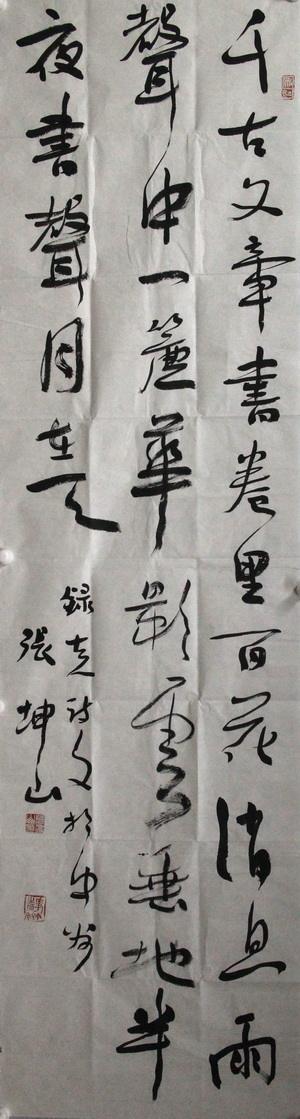 千古文章書卷里百花消息雨
聲中一簾華影雲垂地半
夜書聲月在天
錄克詩文於中州
張坤山